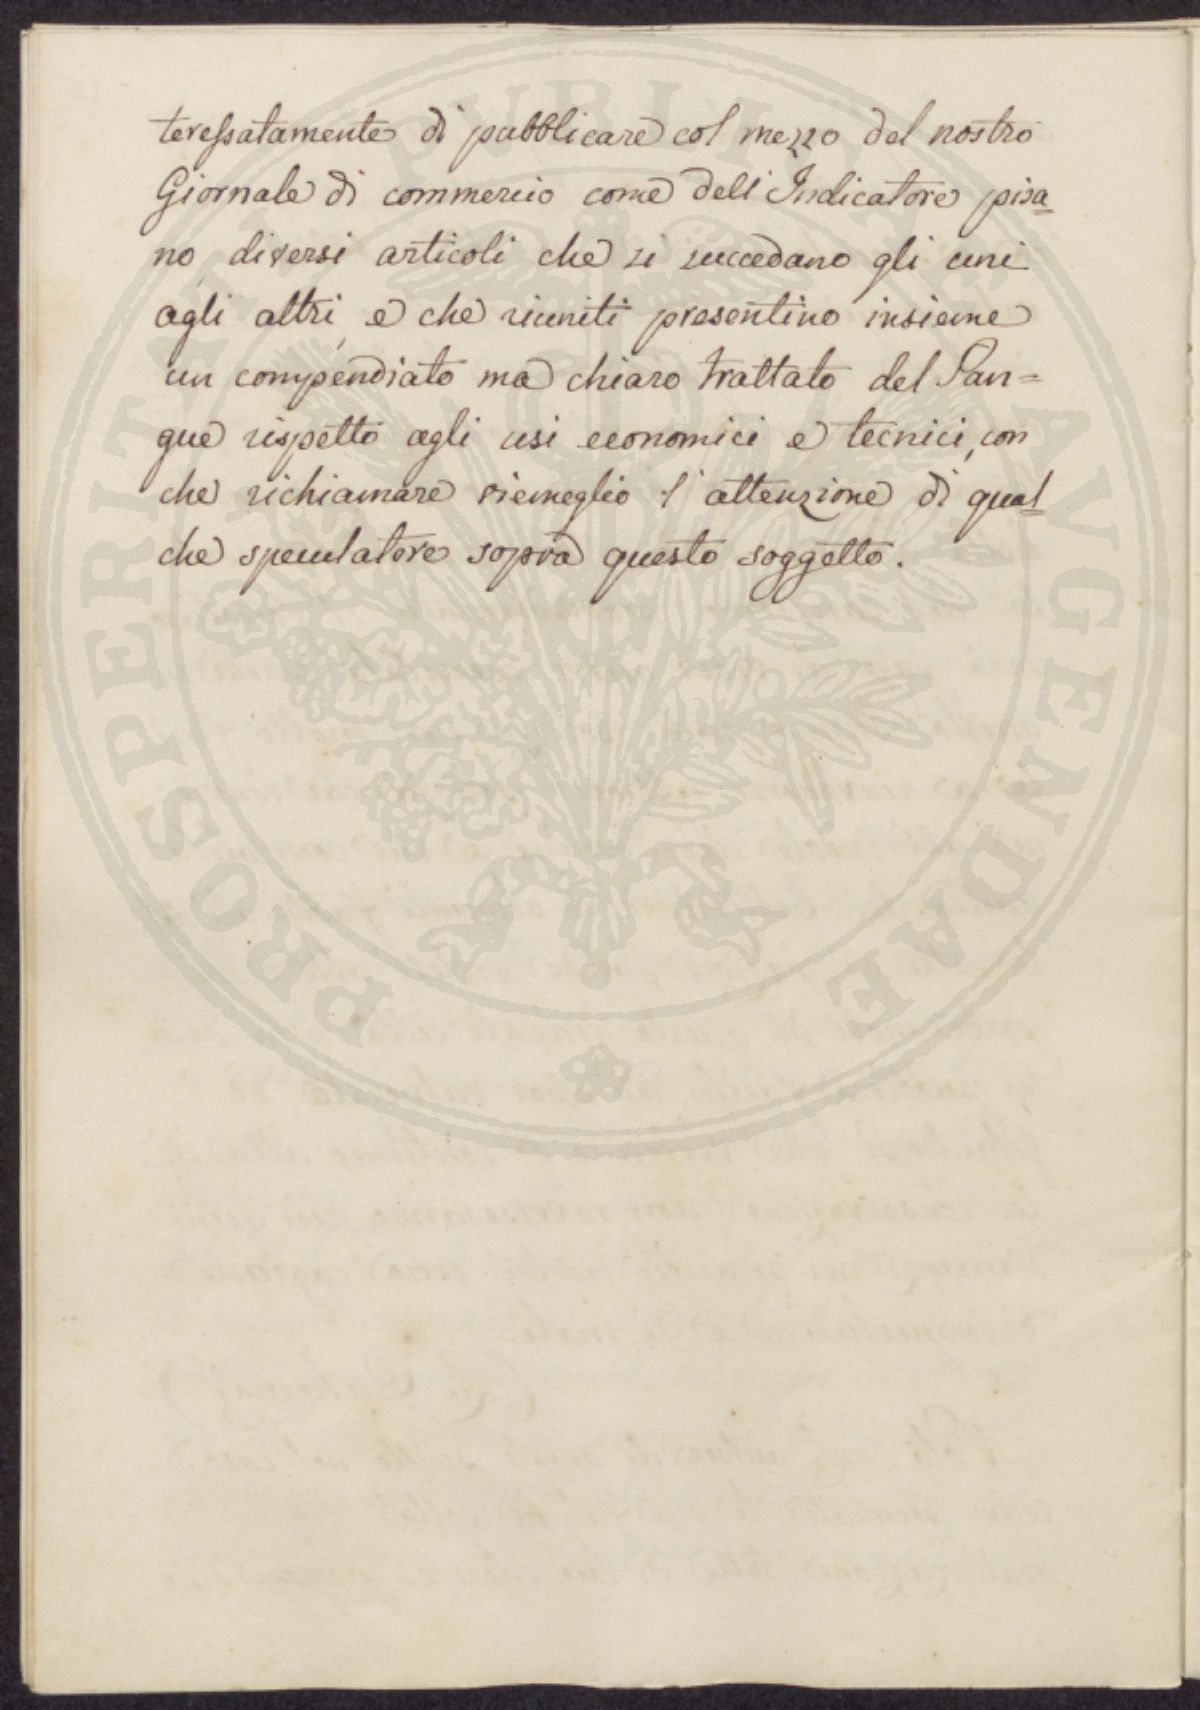 teressatamente di pubblicare col mezzo del nostro
Giornale di commercio come dell'Indicatore pisa=
no diversi articoli che si succedano gli uni
agli altri, e che riuniti presentino insieme
un compendiato ma chiaro trattato del San=
gue rispetto agli usi economici e tecnici, con
che richiamare viemeglio l'attenzione di qual=
che speculatore sopra questo soggetto.
PROSPERITATI PUBLICAE AVGENDAE